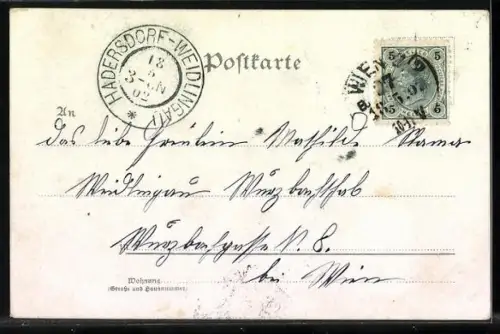 HADERSDORF-WEIDLINGAU
18
3-N
02
Postkarte
WIEN
17
5
5
5
5
An
das liebe Fräulein Mathilde
Weidlingau Wurzbachthal
Wurzbachgasse N. 8.
bei Wien
Wohnung
(Strasse und Hausnummer)